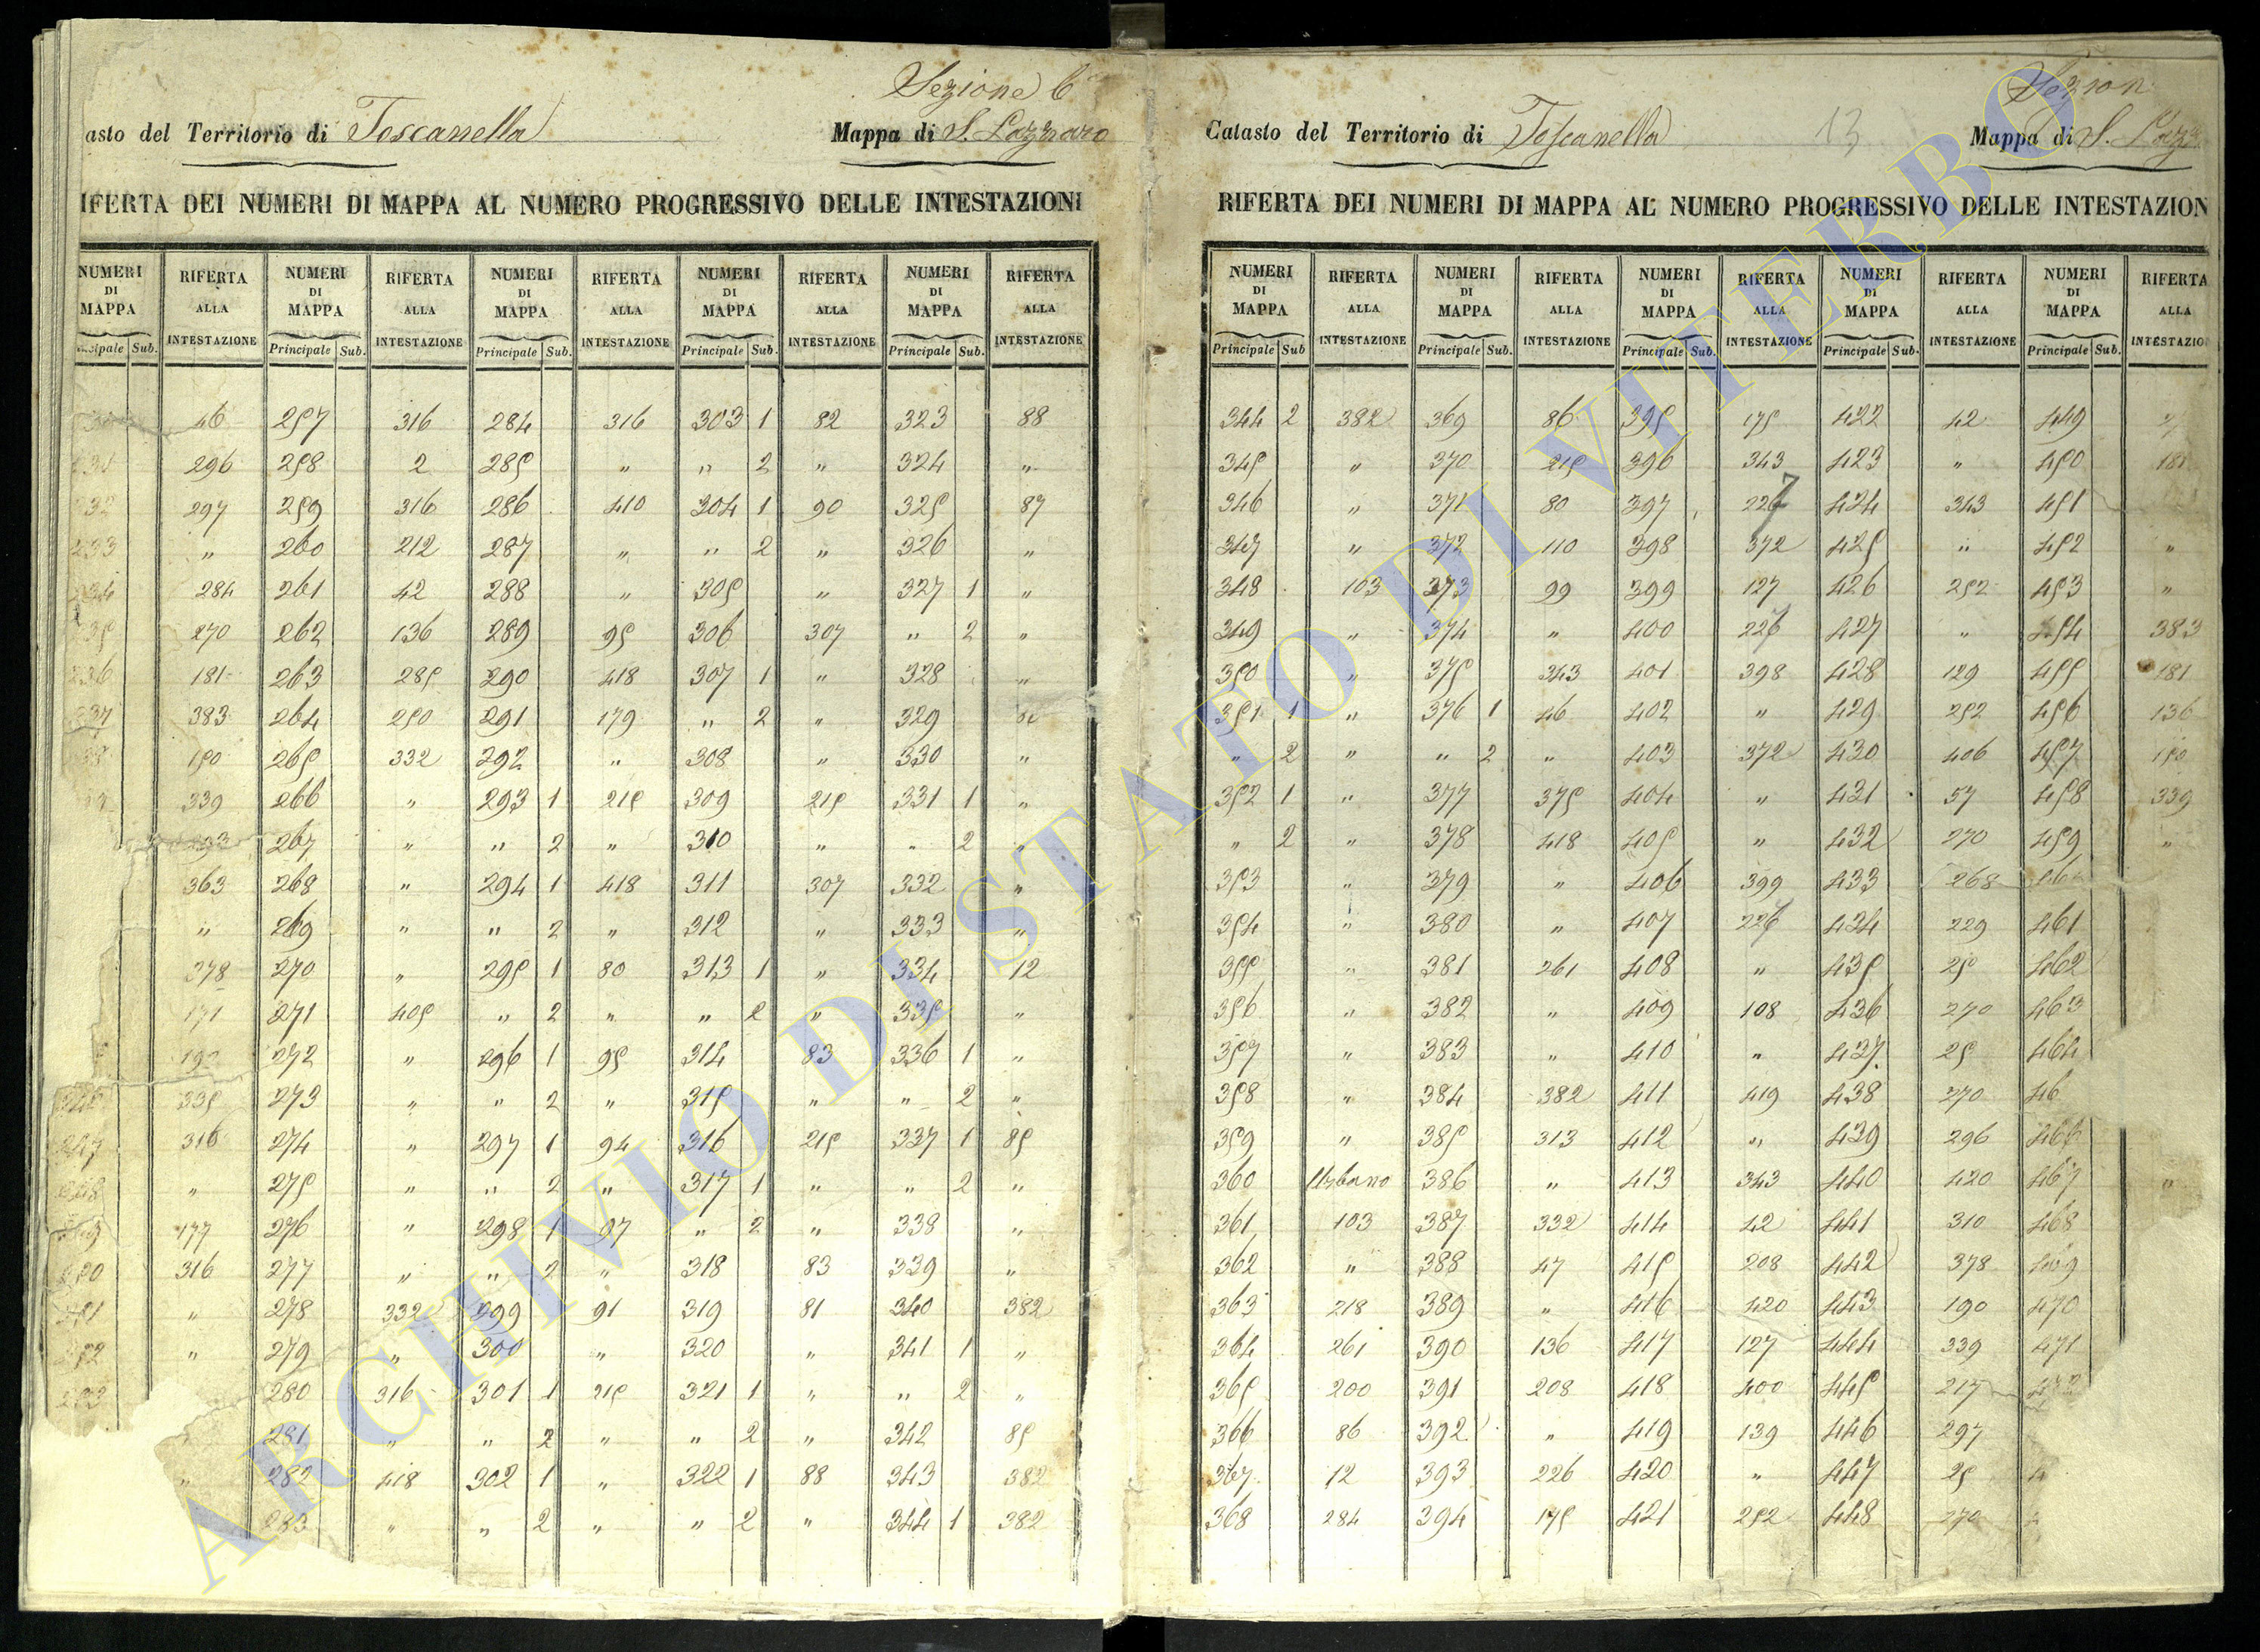 Sezione 6
asto del Territorio di Toscanella Mappa di S. Lazzaro
IFERTA DEI NUMERI DI MAPPA AL NUMERO PROGRESSIVO DELLE INTESTAZIONI
NUMERI DI MAPPA RIFERTA ALLA INTESTAZIONE NUMERI DI MAPPA RIFERTA ALLA INTESTAZIONE NUMERI DI MAPPA RIFERTA ALLA INTESTAZIONE NUMERI DI MAPPA RIFERTA ALLA INTESTAZIONE NUMERI DI MAPPA RIFERTA ALLA INTESTAZIONE
Sub. Principale Sub. Principale Sub. Principale Sub. Principale Sub.
46 257 316 284 316 303 1 82 323 88
231 296 258 2 285 " " 2 " 324 "
232 297 259 316 286 410 304 1 90 325 87
233 " 260 212 287 " " 2 " 326 "
234 284 261 42 288 " 305 " 327 1 "
235 270 262 136 289 95 306 307 " 2 "
236 181 263 285 290 418 307 1 " 328 "
237 383 264 250 291 179 " 2 " 329
150 265 332 292 " 308 " 330 "
339 266 " 293 1 215 309 215 331 1 "
267 " " 2 " 310 " " 2 "
363 268 " 294 1 418 311 307 332 "
" 269 " " 2 " 312 " 333 "
378 270 " 295 1 80 313 1 " 334 12
171 271 405 " 2 " " 2 " 335 "
272 " 296 1 95 314 83 336 1 "
335 273 " " 2 " 315 " " 2 "
247 316 274 " 297 1 94 316 215 337 1 85
248 " 275 " " 2 " 317 1 " " 2 "
177 276 " 298 1 97 " 2 " 338 "
250 316 277 " " 2 " 318 83 339 "
251 " 278 332 299 91 319 81 340 382
252 " 279 " 300 " 320 " 341 1 "
253 280 316 301 1 215 321 1 " " 2 "
" 281 " " 2 " " 2 " 342 85
" 282 418 302 1 " 322 1 88 343 382
283 " " 2 " " 2 " 344 1 382
Sezion
Catasto del Territorio di Toscanella 13 Mappa di S. Lazz
RIFERTA DEI NUMERI DI MAPPA AL NUMERO PROGRESSIVO DELLE INTESTAZION
NUMERI DI MAPPA RIFERTA ALLA INTESTAZIONE NUMERI DI MAPPA RIFERTA ALLA INTESTAZIONE NUMERI DI MAPPA RIFERTA ALLA INTESTAZIONE NUMERI DI MAPPA RIFERTA ALLA INTESTAZIONE NUMERI DI MAPPA RIFERTA ALLA INTESTAZIO
Principale Sub Principale Sub. Principale Sub. Principale Sub. Principale Sub.
344 2 382 369 86 395 175 422 42 449
345 " 370 215 396 343 423 " 450 181
346 " 371 80 397 227 424 343 451
347 " 372 110 398 372 425 " 452 "
348 103 373 99 399 127 426 252 453 "
349 " 374 " 400 226 427 " 454 383
350 " 375 343 401 398 428 129 455 181
351 1 " 376 1 46 402 " 429 252 456 136
" 2 " " 2 " 403 372 430 406 457 150
352 1 " 377 375 404 " 431 57 458 339
" 2 " 378 418 405 " 432 270 459 "
353 " 379 " 406 399 433 268
354 " 380 " 407 226 434 229 461
355 " 381 261 408 " 435 25 462
356 " 382 " 409 108 436 270 463
357 " 383 " 410 " 437 25 464
358 " 384 382 411 419 438 270 46
359 " 385 313 412 " 439 296 466
360 Urbano 386 " 413 343 440 420 467 "
361 103 387 332 414 42 441 310 468
362 " 388 47 415 208 442 378 469
363 218 389 " 416 420 443 190 470
364 261 390 136 417 127 444 339 471
365 200 391 208 418 400 445 217 472
366 86 392 " 419 139 446 297
367 12 393 226 420 " 447 25 4
368 284 394 175 421 252 448 270
ARCHIVIO DI STATO DI VITERBO